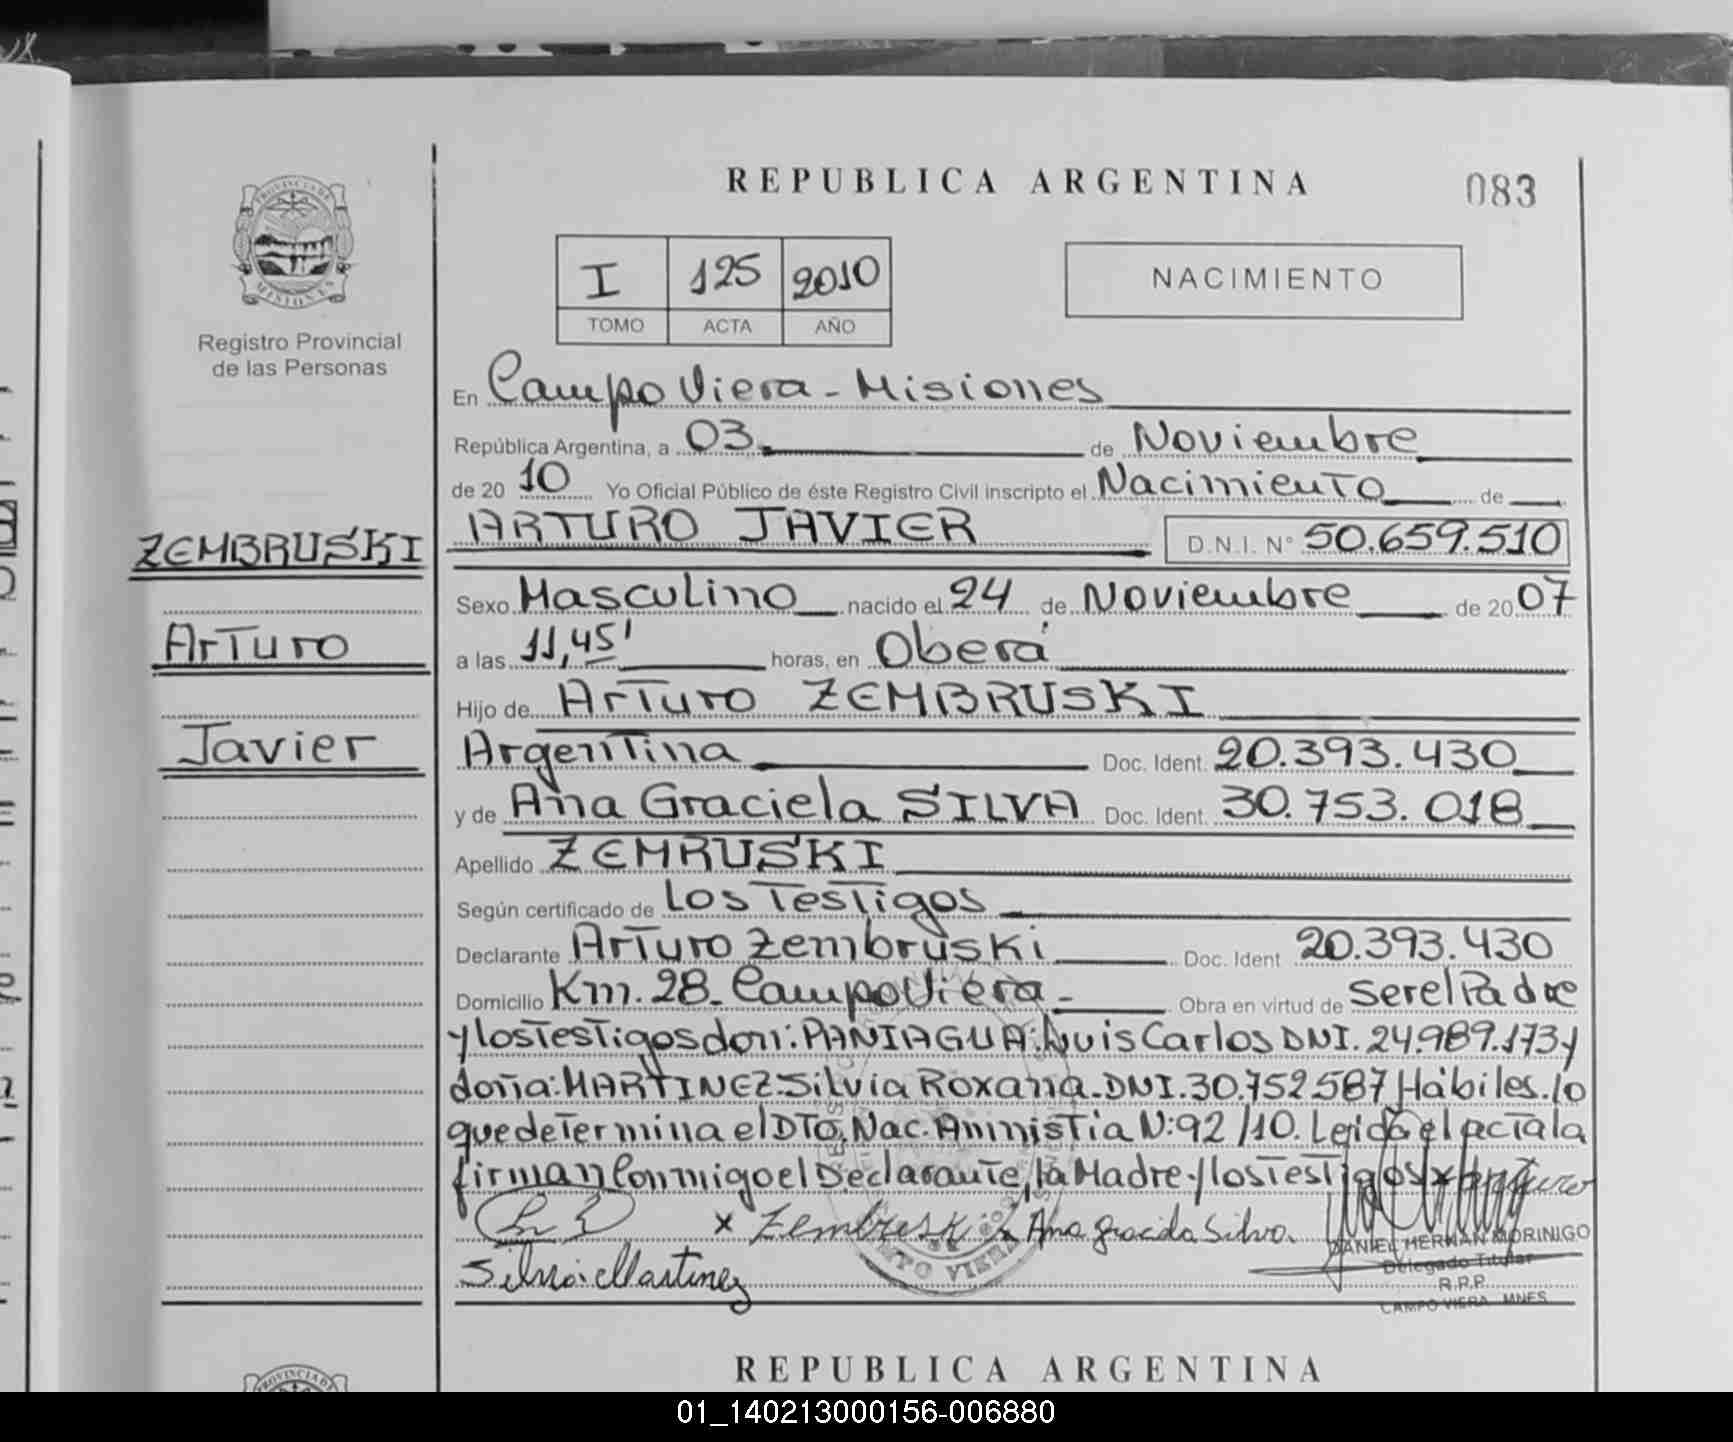 REPUBLICA ARGENTINA
083
PROVINCIA DE
MISIONES
Registro Provincial
de las Personas
I 125 2010
TOMO ACTA AÑO
NACIMIENTO
En Campo Viera - Misiones
República Argentina, a 03 de Noviembre
de 2010 Yo Oficial Público de éste Registro Civil inscripto el Nacimiento de
ARTURO JAVIER D.N.I. N° 50.659.510
ZEMBRUSKI
Arturo
Javier
Sexo Masculino nacido el 24 de Noviembre de 2007
a las 11,45' horas, en Oberá
Hijo de Arturo ZEMBRUSKI
Argentina Doc. Ident. 20.393.430
y de Ana Graciela SILVA Doc. Ident. 30.753.018
Apellido ZEMRUSKI
Según certificado de Los Testigos
Declarante Arturo Zembruski Doc. Ident 20.393.430
Domicilio Km. 28 - Campo Viera - Obra en virtud de ser el Padre
y los Testigos don: PANIAGUA: Luis Carlos DNI. 24.989.173 y
doña: MARTINEZ. Silvia Roxana - DNI. 30.752587 Hábiles. lo
que determina el DTO. Nac. Amnistia N: 92/10. Leida el acta la
firman Conmigo el Declarante, la Madre y los Testigos x Arturo
x Zembruski x Ana Graciela Silva.
Silvia Martinez
DANIEL HERNAN MORINIGO
Delegado Titular
R.P.P.
CAMPO VIERA MNES
CAMPO VIERA
REPUBLICA ARGENTINA
PROVINCIA DE
01_140213000156-006880